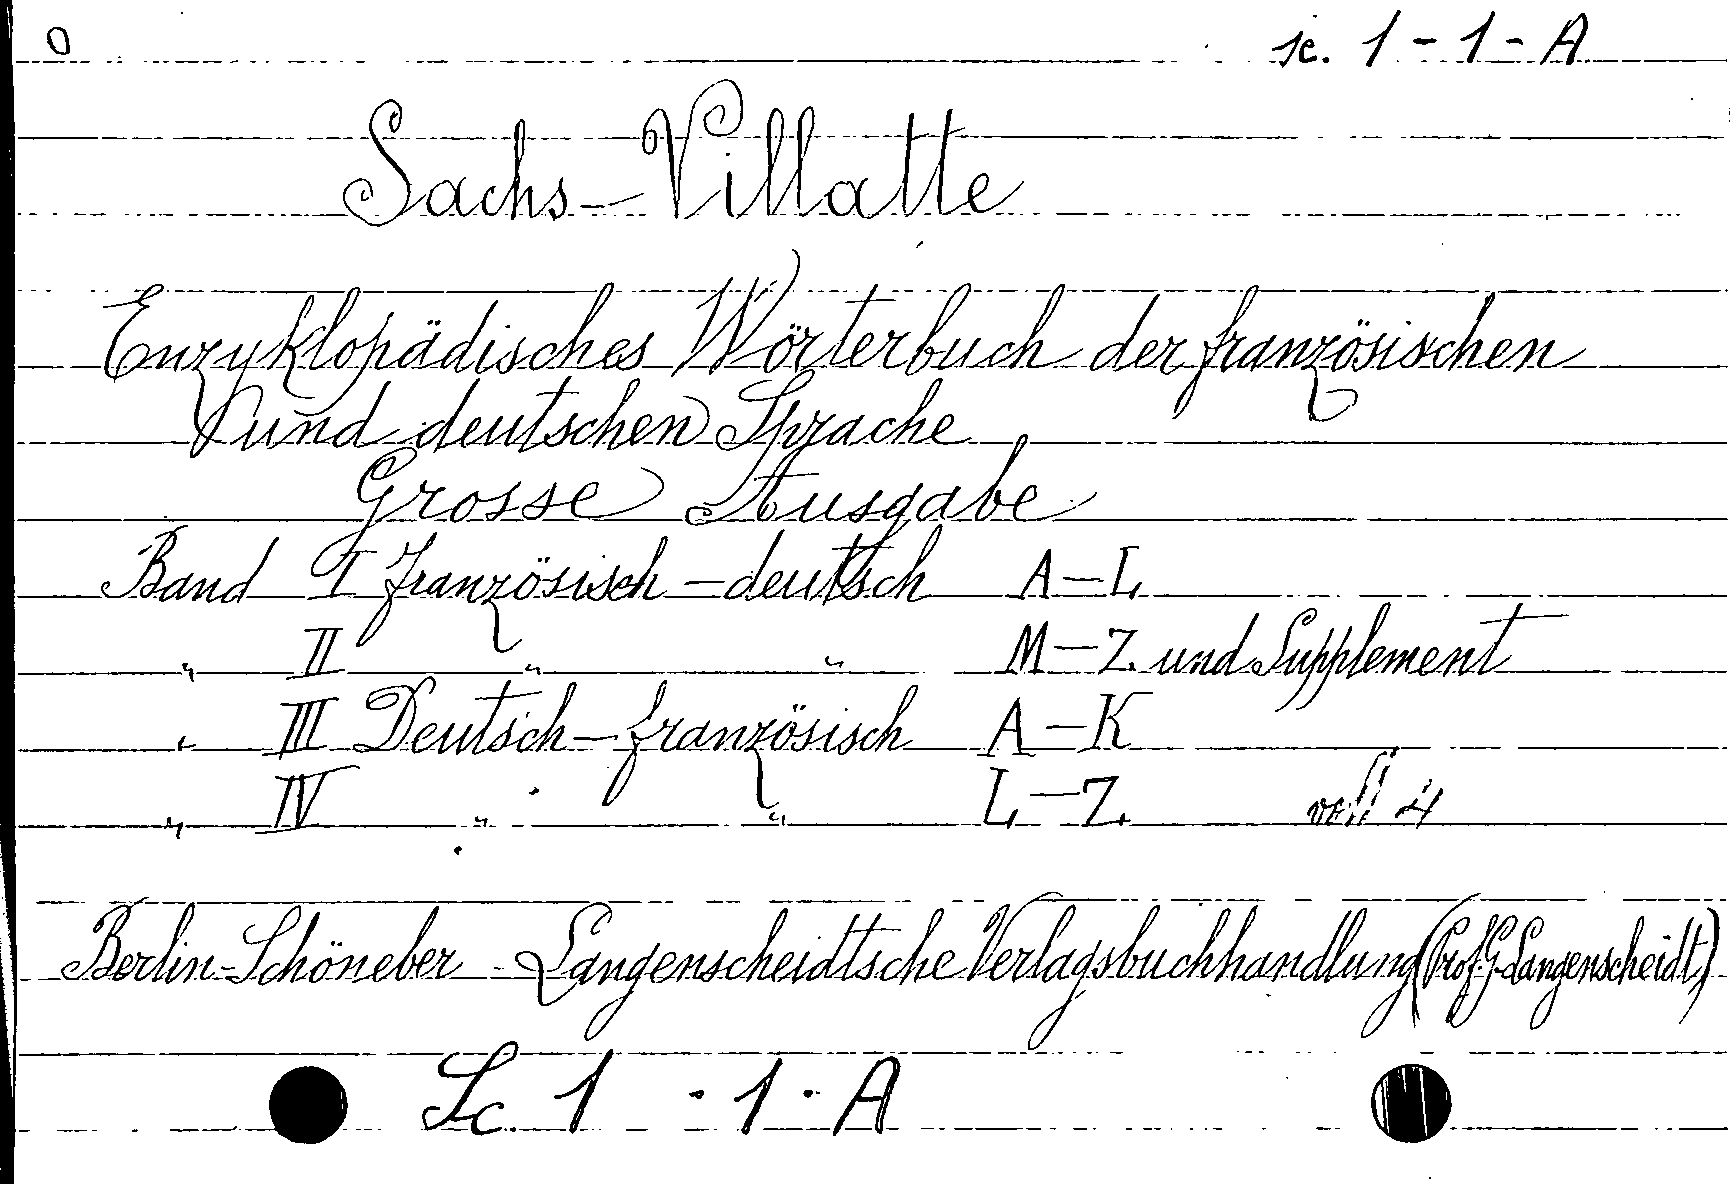 0 Sc. 1 - 1 - A
Sachs-Villatte
Enzyklopädisches Wörterbuch der französischen
und deutschen Sprache
Grosse Ausgabe
Band I französisch-deutsch A-L
" II " " M-Z und Supplement
" III Deutsch-französisch A-K
" IV " " L-Z 4
Berlin-Schöneber - Langenscheidtsche Verlagsbuchhandlung (Prof. G. Langenscheidt)
Sc. 1 . 1 . A